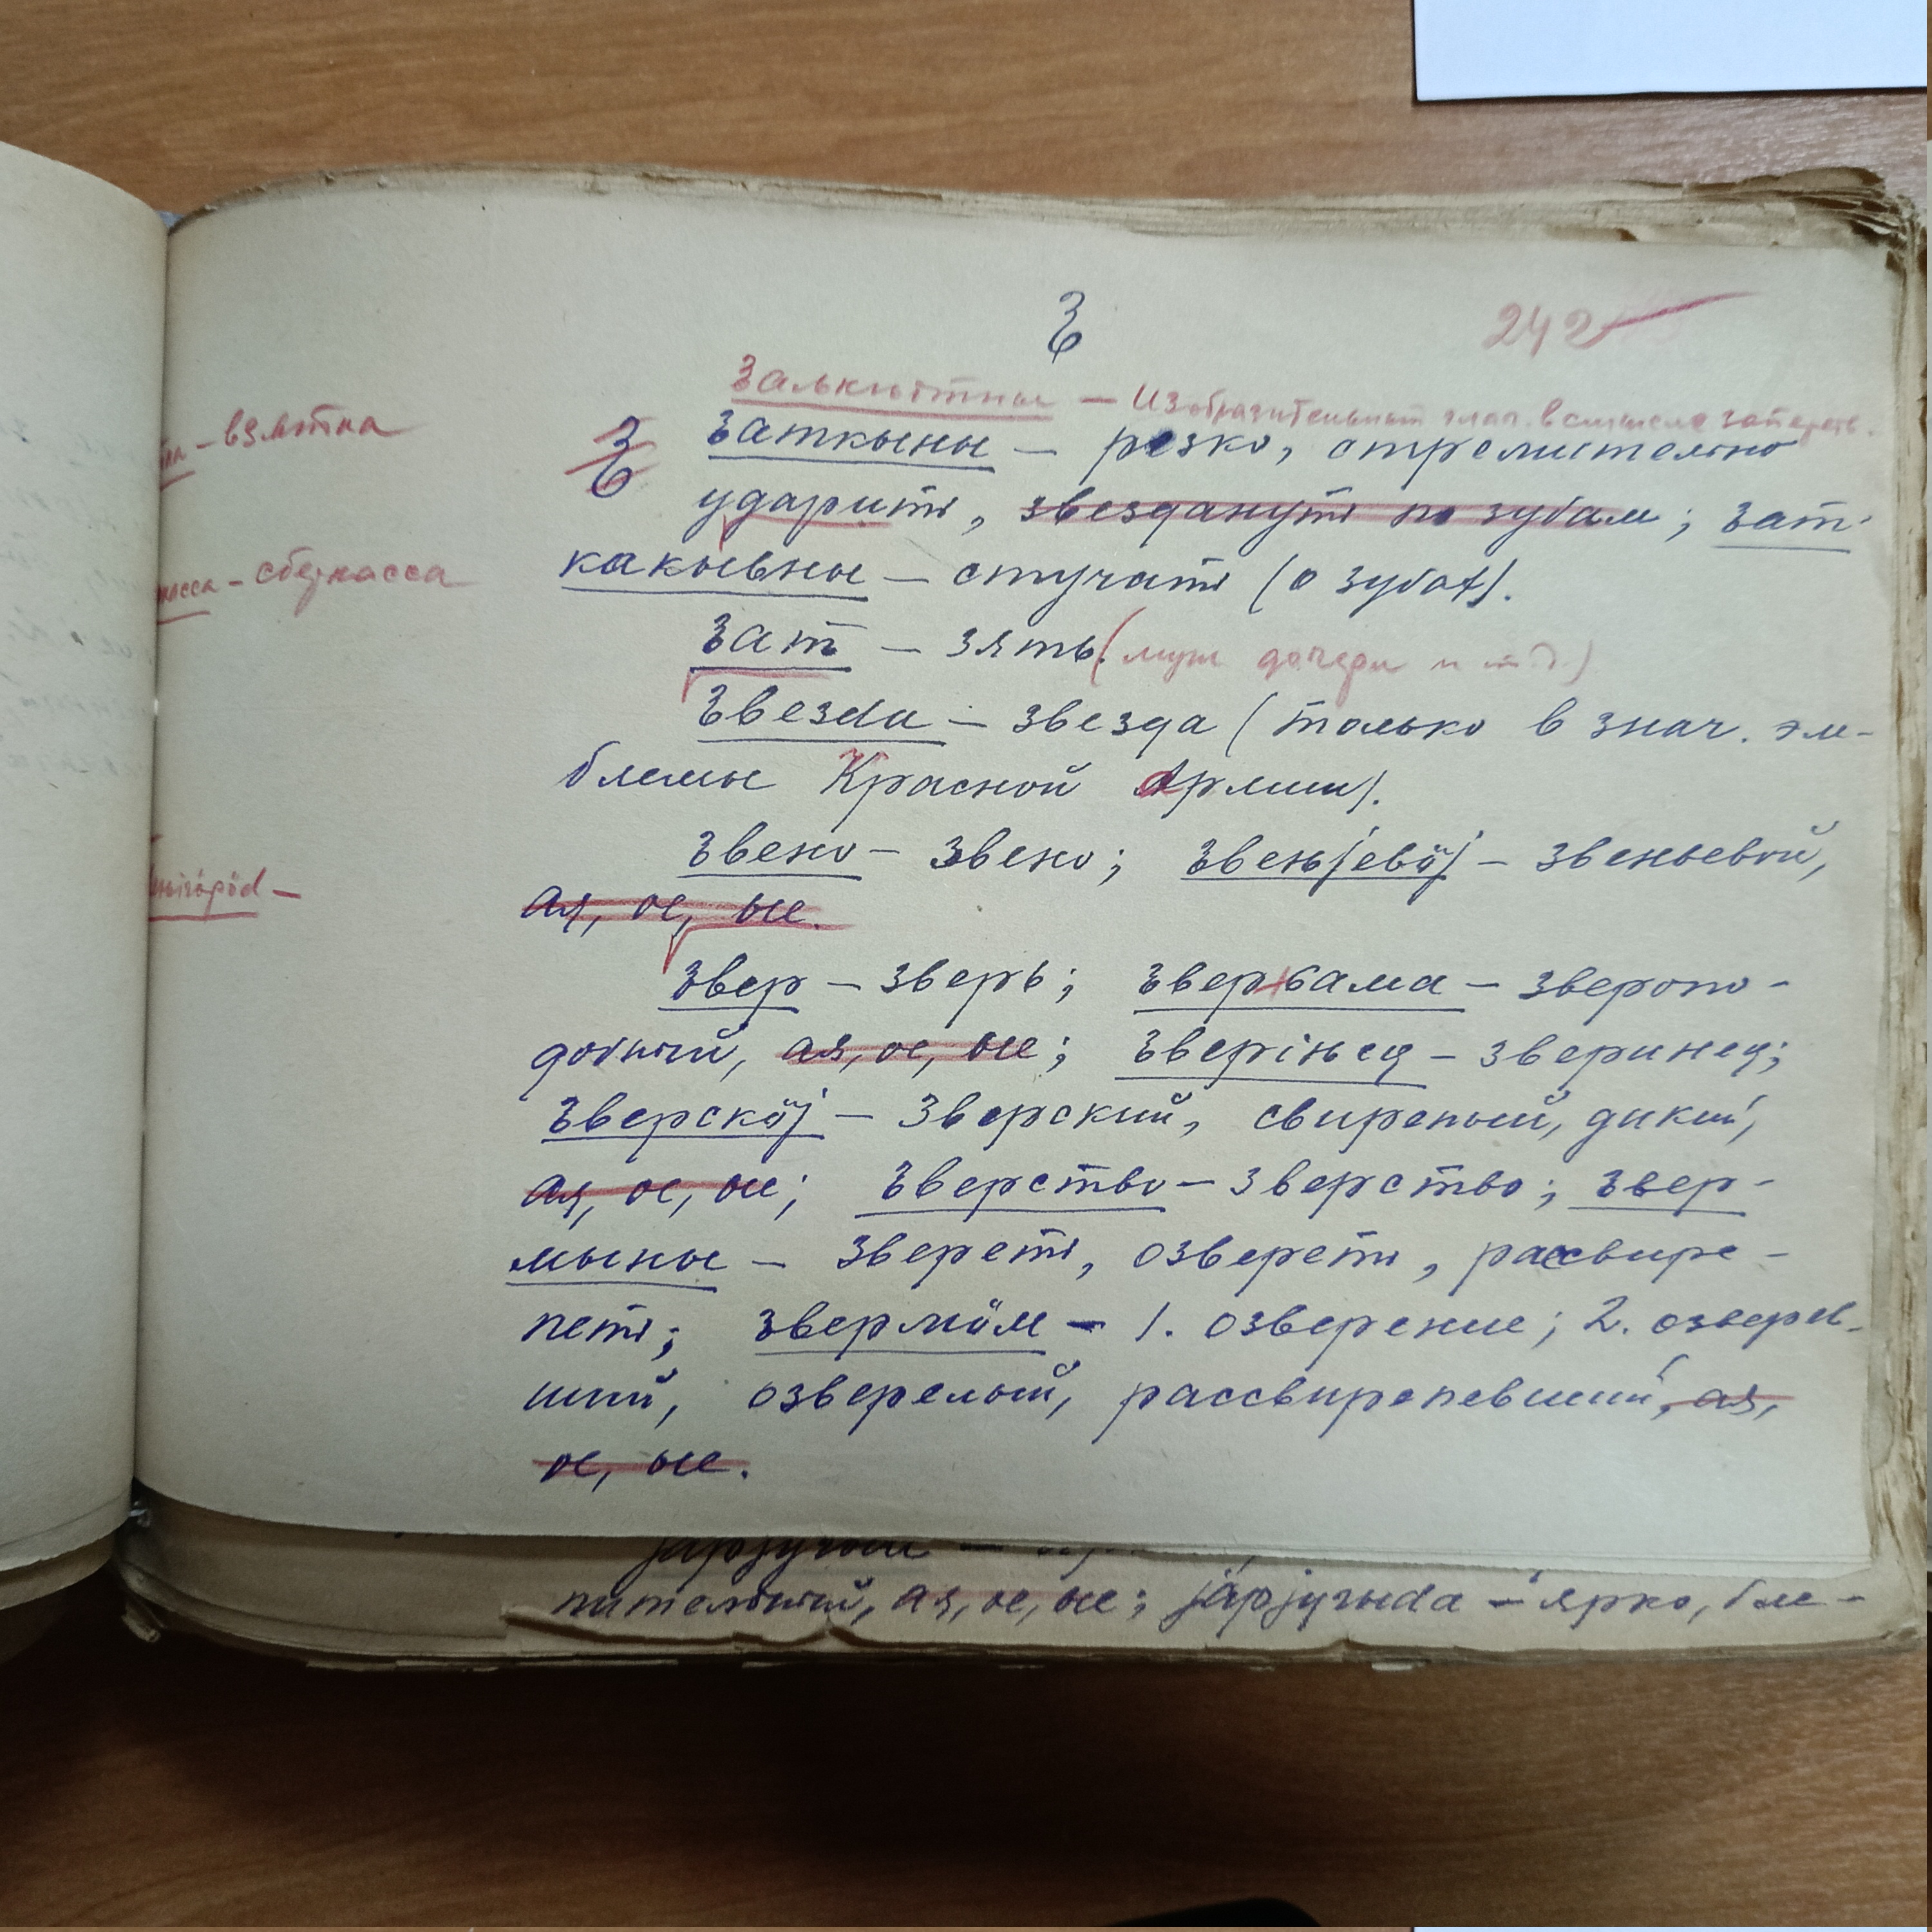 Ԇ
242
Ԇалькнітны — Изобразительный глаг. в смысле запереть.
Ԇ Ԇаткыны — резко, стремительно
ударить, звездануть по зубам; ԇат-
какывны — стучать (о зубах).
Ԇат — зять. (муж дочери и т.д.)
Ԇвезԁа — звезда (только в знач. эм-
блемы Красной Армии).
Ԇвено — звено; ԇвеньјевӧј — звеньевой,
ая, ое, ые.
Ԇвер — зверь; ԇверкама — зверопо-
добный, ая, ое, ые; ԇверіњец — зверинец;
ԇверскӧј — зверский, свирепый, дикий,
ая, ое, ые; ԇверство — зверство; ԇвер-
мыны — звереть, озвереть, рассвире-
петь; ԇвермӧм — 1. озверение; 2. озверев-
ший, озверелый, рассвирепевший, ая,
ое, ые.
— взятка
касса — сберкасса
пительный, ая, ое, ые; јарјугыԁа — ярко, бле-